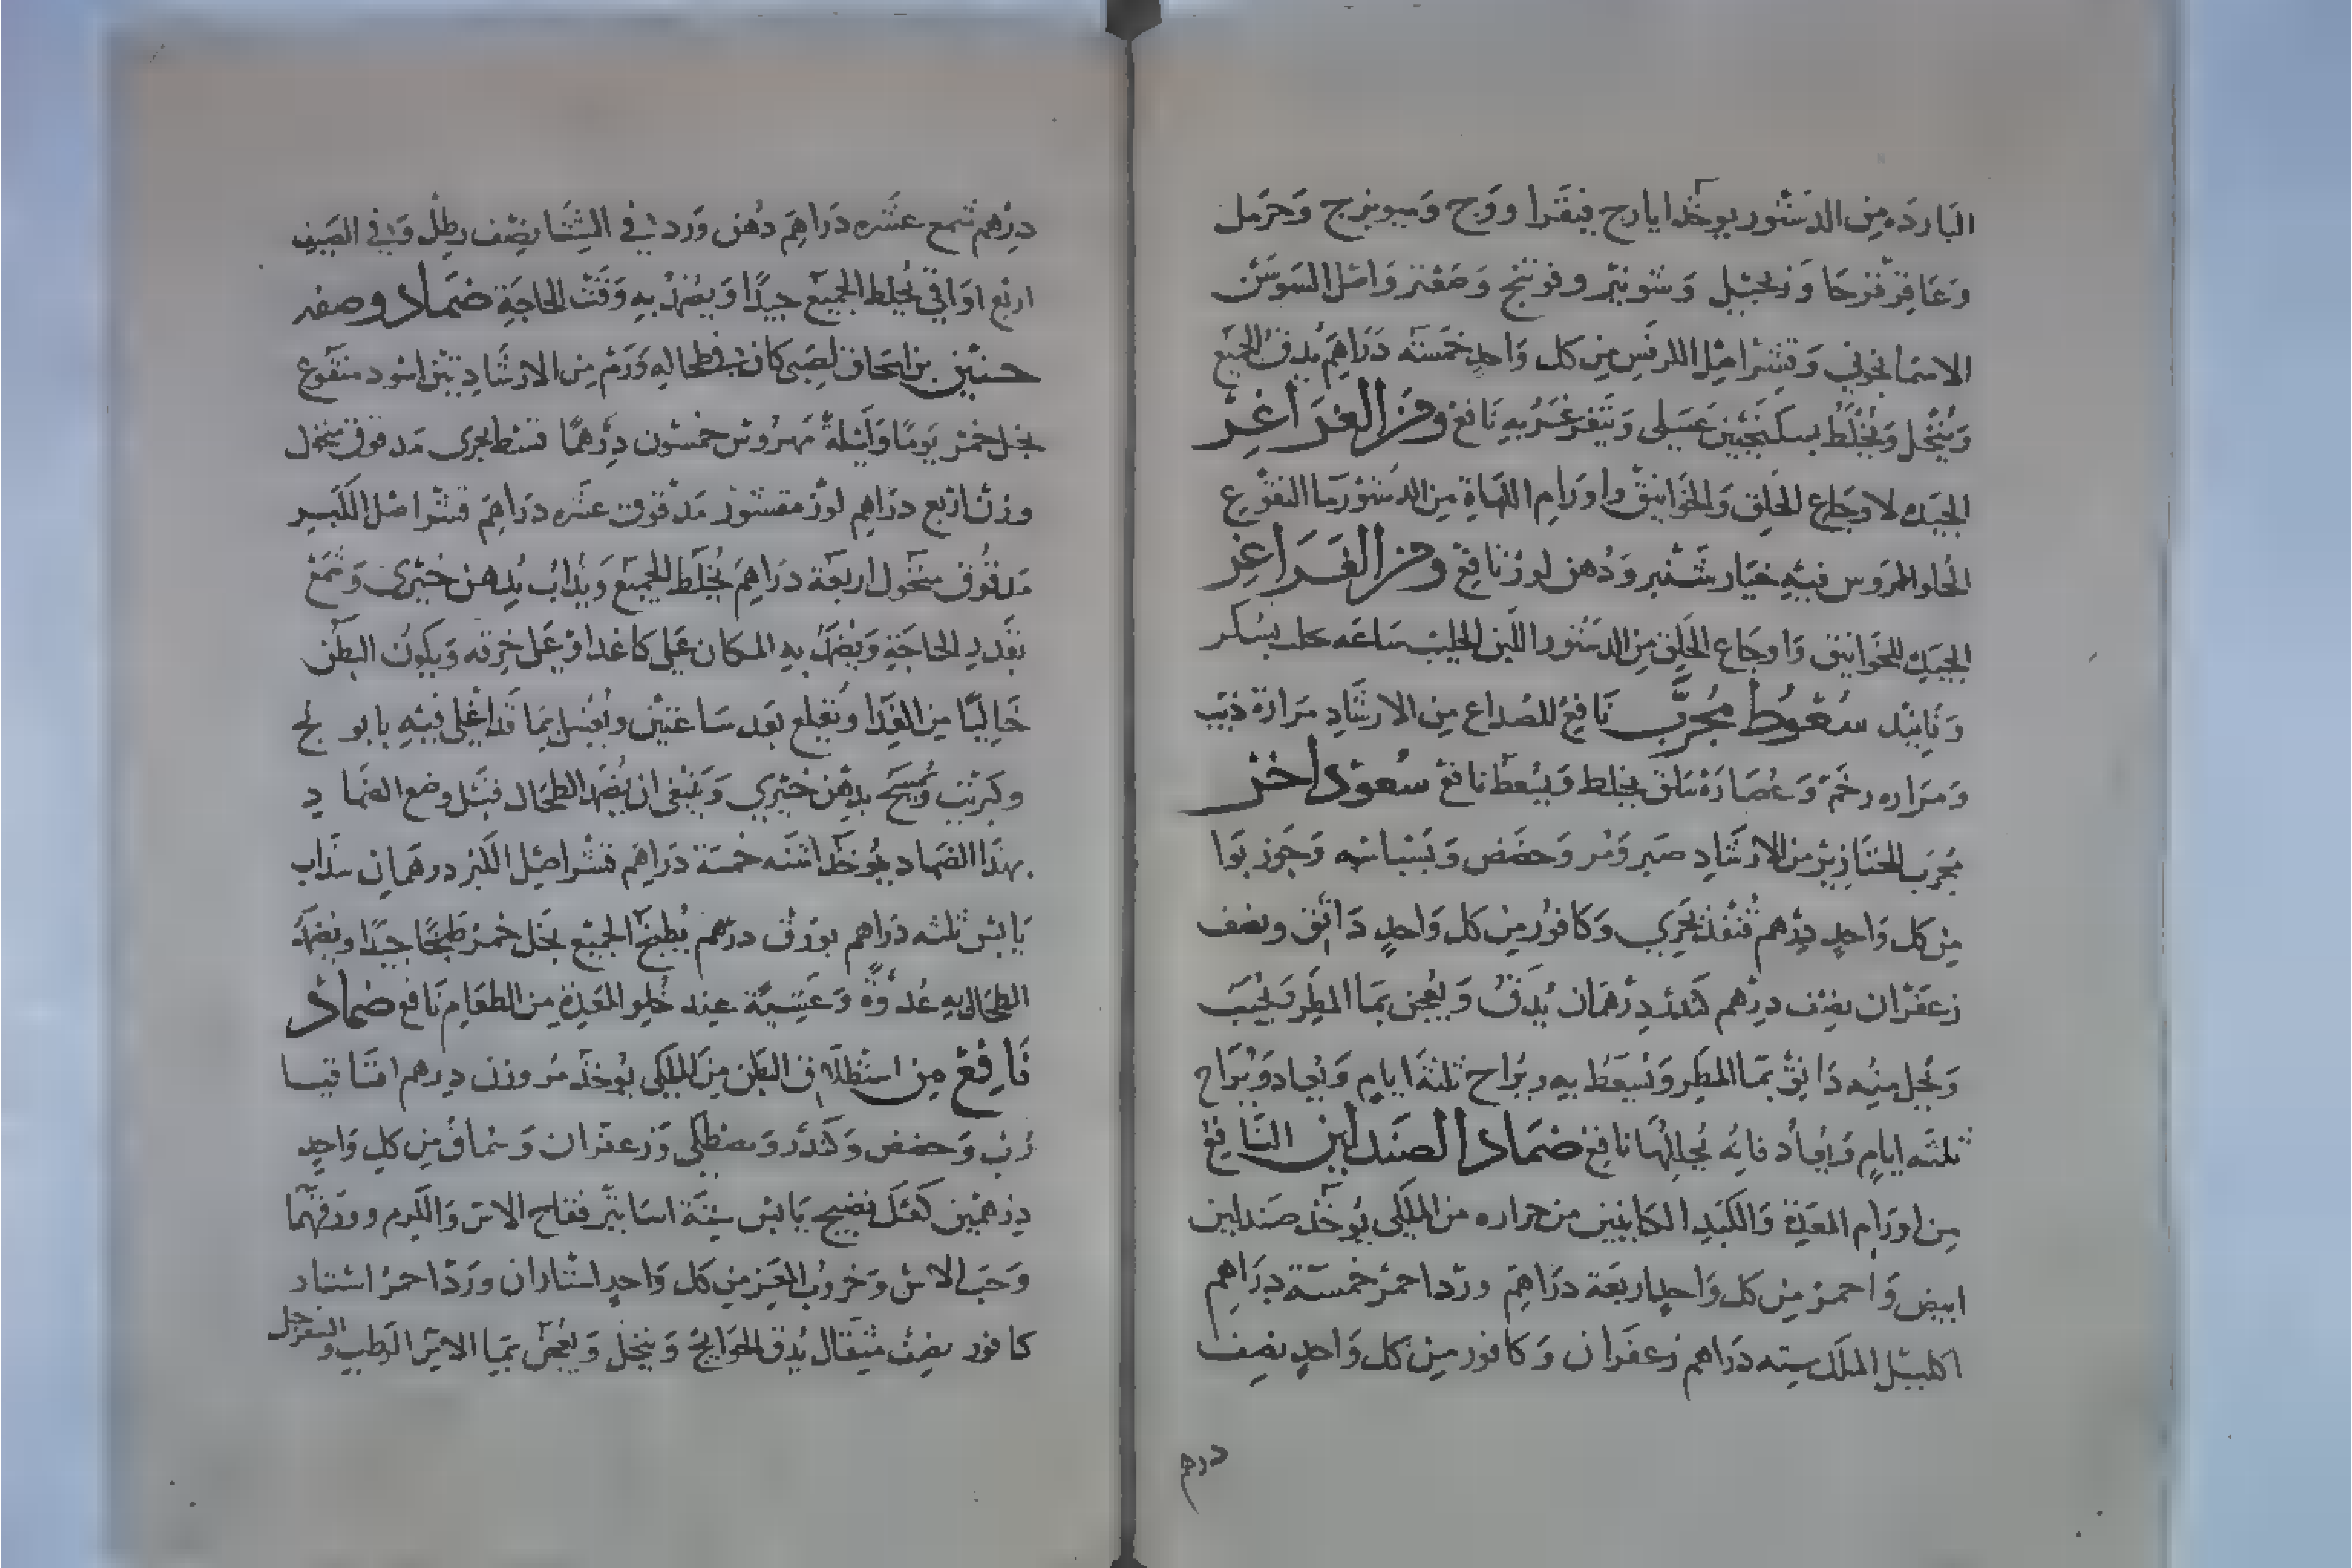 البارده من الدستور يوخذ ايارج فيقرا ووج وميويزج وحرمل
وعاقرقرحا وزنجبيل وشونيز وفوتنج وصعتر واصل السوسن
الاسمانجوني وقشر اصل الكرفس من كل واحد خمسته دراهم يدق الجميع
وينخل ويخلط بسكنجبين عسلي ويتغرغر به نافع ومن الغراغر
الجيده لاوجاع الحلق والخوانيق واورام اللهاة من الدستور ما النقوع
الحلو الممروس فيه خيار شنبر ودهن لوز نافع ومن الغراغر
الجيده للخوانيق واوجاع الحلق من الدستور اللبن الحليب ساعه حلب بسكر
وفانيد سعوط مجرب نافع للصداع من الارشاد مرارة ذيب
ومراره رخم وعصارة سلق يخلط ويسعط نافع سعود اخر
مجرب للخنازير من الارشاد صبر ومر وحضض وبسباسه وجوز بوا
من كل واحد درهم وكافور من كل واحد دانق ونصف
زعفران نصف درهم كندر درهمان يدق ويعجن بما المطر ويحبب
ويحل منه دانق بما المطر ويسعط به ويراح ثلثة ايام ويعاد ويراح
ثلثه ايام ويعاد فانه نافع ضماد الصندلين النافع
من اورام المعدة والكبد الكاينين من حراره من الملكي يوخذ صندلين
ابيض واحمر من كل واحد اربعة دراهم ورد احمر خمسة دراهم
اكليل الملك سته دراهم زعفران وكافور من كل واحد نصف
درهم
درهم شمع عشره دراهم دهن ورد في الشتا نصف رطل وفي الصيف
اربع اواقي يخلط الجميع جيدا ويضمد به وقت الحاجة ضماد وصفه
حنين بن اسحاق لصبي كان في طحاله ورم من الارشاد تين اسود منقوع
بخل خمر يوما وليلة مهروس خمسون درهما قسط بحري مدقوق منخل
وزن اربع دراهم لوز مقشور مدقوق عشره دراهم قشر اصل الكبر
مدقوق منخول اربعة دراهم يخلط الجميع ويذاب بدهن خيري وشمع
بقدر الحاجة ويضمد به المكان على كاغد او على خرقه ويكون البطن
خاليا من الغدا ويقلع بعد ساعتين ويغسل بما قد اغلي فيه بابو نج
وكبريت ويمسح بدهن خيري وينبغي ان يضمد الطحال قبل وضع الضما د
بهذا الضماد يوخذ اشنه خمسة دراهم قشر اصل الكبر درهمان سذاب
يابس ثلثه دراهم بورق درهم يطبخ الجميع بخل خمر طبخا جيدا ويضمد
الطحال به غدوة وعشية عند خلو المعدة من الطعام نافع ضماد
نافع من استطلاق البطن من الملكي يوخذ مر وزن درهم اقاقيا
رب وحضض وكندر ومصطكي وزعفران وسماق من كل واحد
درهمين كعك نضيج يابس ستة اساتير فقاح الاس والكرم وورقهما
وحب الاس وخروب المعز من كل واحد استاران ورد احمر استار
كافور نصف مثقال يدق الحوايج وينخل ويعجن بما الاس الرطب والسفرجل